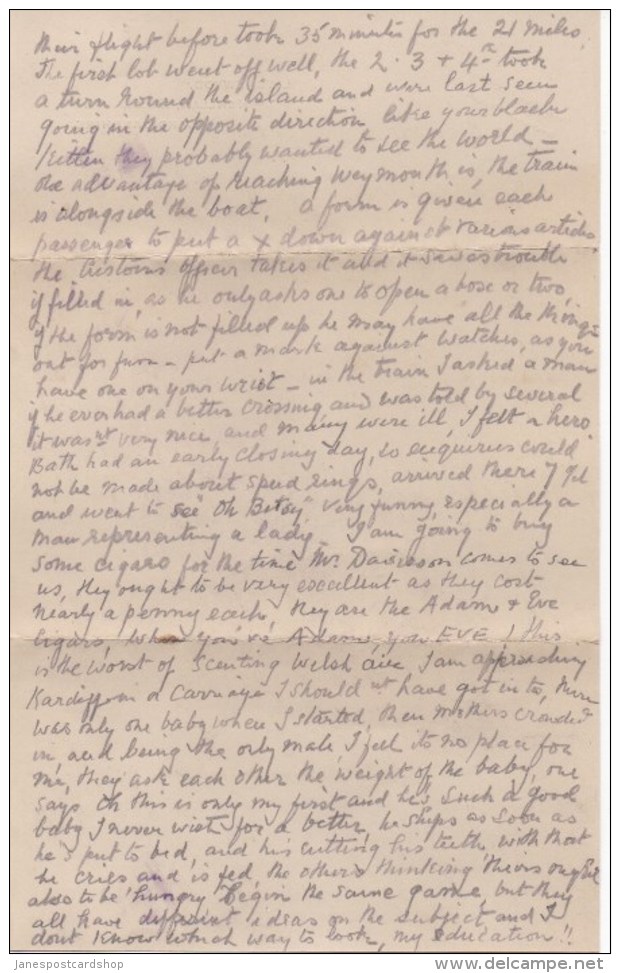 their flight before took 35 minutes for the 21 miles.
The first lob went off well, the 2. 3 + 4th took
a turn round the island and were last seen
going in the opposite direction like your black
kitten they probably wanted to see the world -
One advantage of reaching Weymouth is, the train
is alongside the boat, a form is given each
passenger to put a x down against various articles
the Customs officer takes it and it saves trouble
if filled in, as he only asks one to open a box or two,
if the form is not filled up he may have all the things
out for fun - put a mark against watches, as you
have one on your wrist - in the train I asked a man
if he ever had a better crossing and was told by several
it wasn't very nice, and many were ill, I felt a hero.
Bath had an early closing day, so enquiries could
not be made about spud rings, arrived there 7
and went to see "Oh Betsy" very funny especially a
man representing a lady - I am going to buy
some cigars for the time Mr. Davisson comes to see
us, they ought to be very excellent as they cost
nearly a penny each, they are the Adam + Eve
Cigars, when you've Adam, you EVE ! this
is the worst of scenting Welsh air I am approaching
Kardiff in a Carriage I should nt have got in to, there
was only one baby when I started, then mothers crowded
in, and being the only male, I feel its no place for
me, they ask each other the weight of the baby, one
says Oh this is only my first and he's such a good
baby I never wish for a better, he sleeps as soon as
he's put to bed, and his cutting his teeth, with that
he cries and is fed, the others thinking theirs ought
also to be hungry begin the same game, but they
all have different ideas on the subject and I
dont know which way to look, my education !!
janespostcardshop
delcampe.net